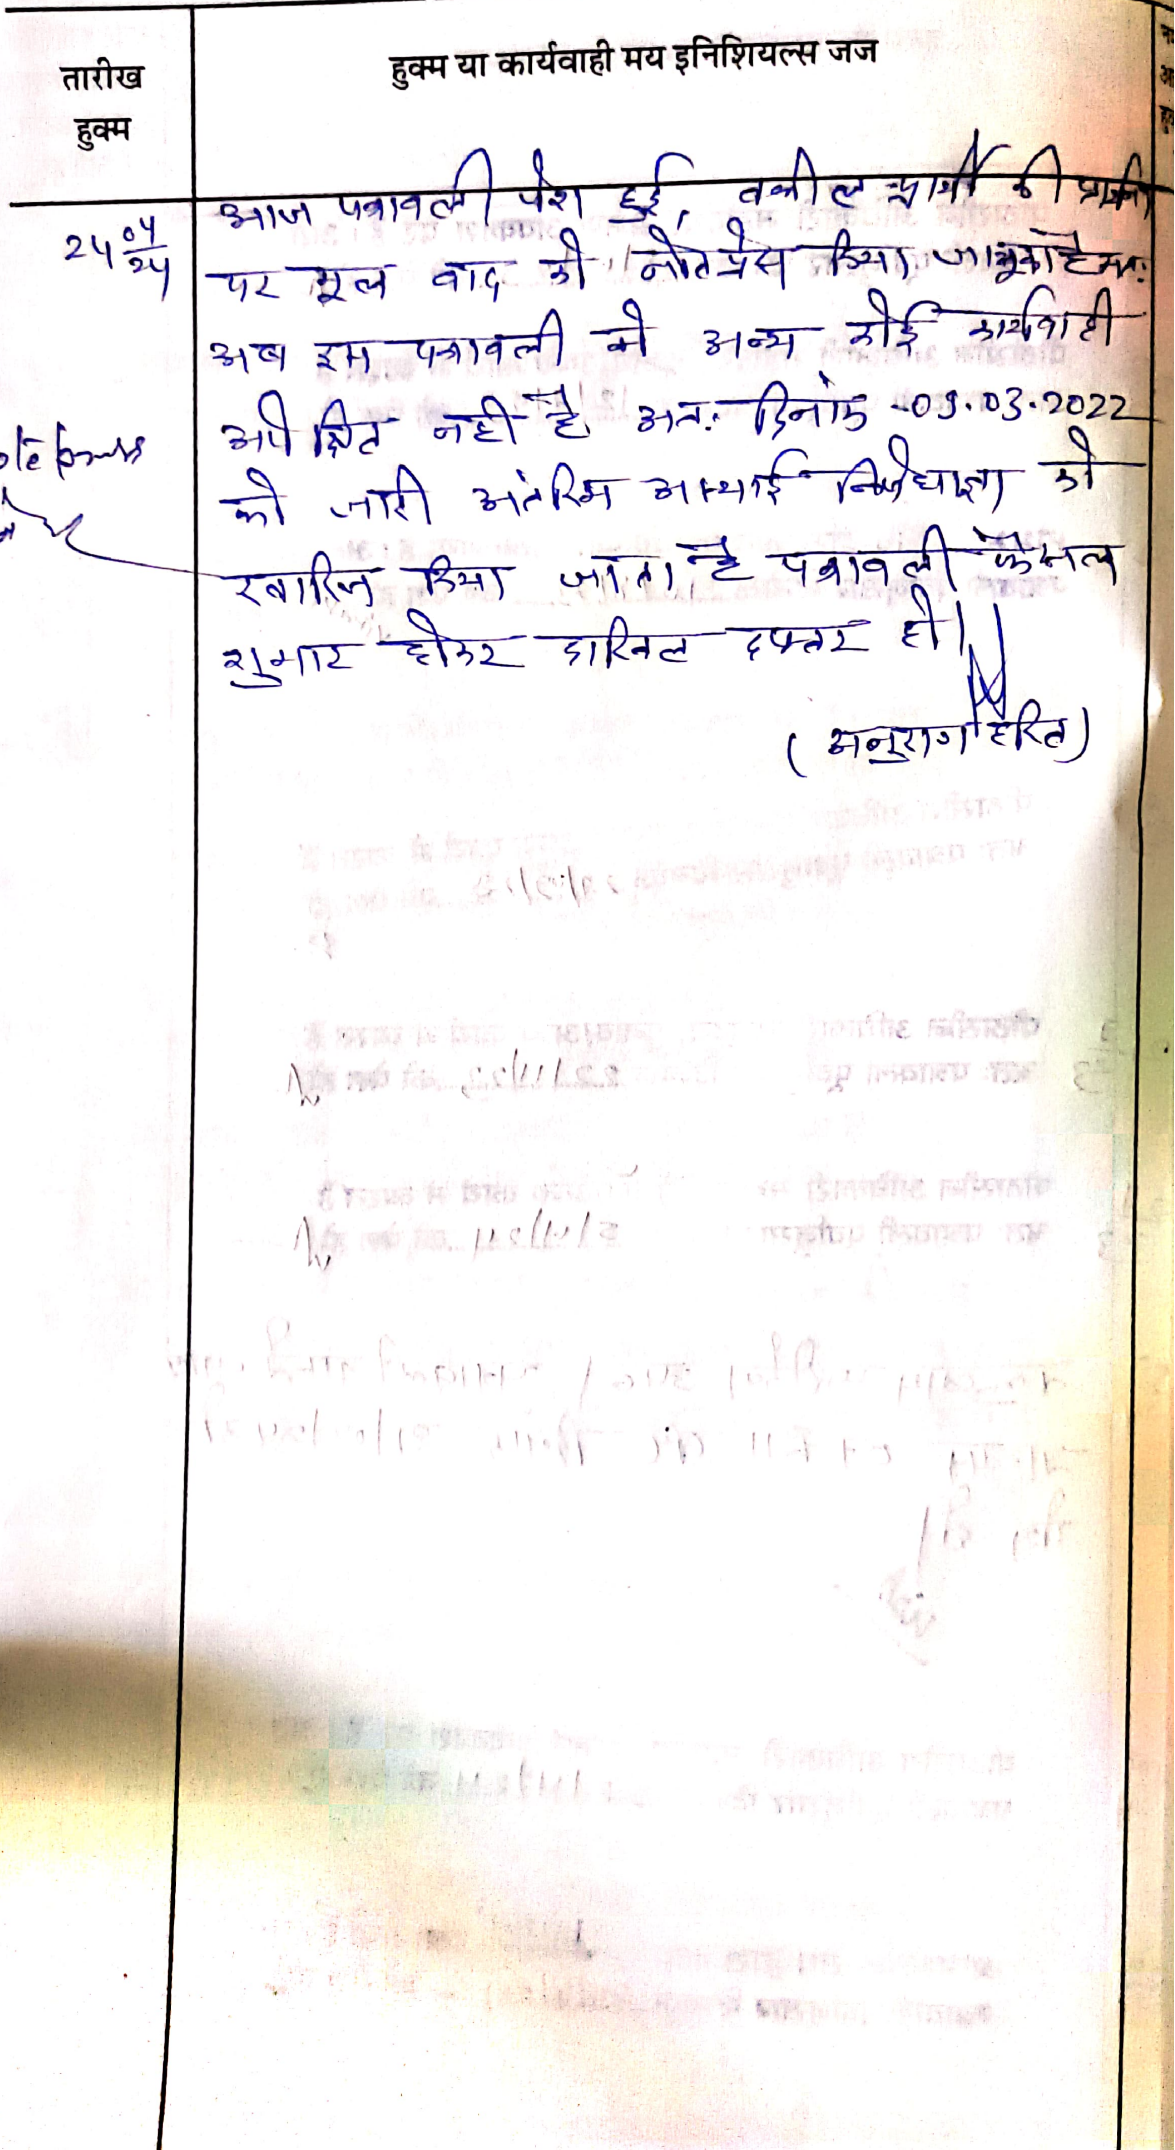 तारीख
हुक्म
हुक्म या कार्यवाही मय इनिशियल्स जज
24 04/24
आज पत्रावली पेश हुई, वकील प्रार्थी की
पर मूल वाद को नोटप्रेस किया जा चुका है अतः
अब इस पत्रावली मे अन्य कोई कार्यवाही
अपेक्षित नही है अतः दिनांक 09.03.2022
को जारी अंतरिम अस्थाई निषेधाज्ञा को
खारिज किया जाता है पत्रावली फैसल
शुमार होकर दाखिल दफ्तर हो।
(अनुराग हरित)